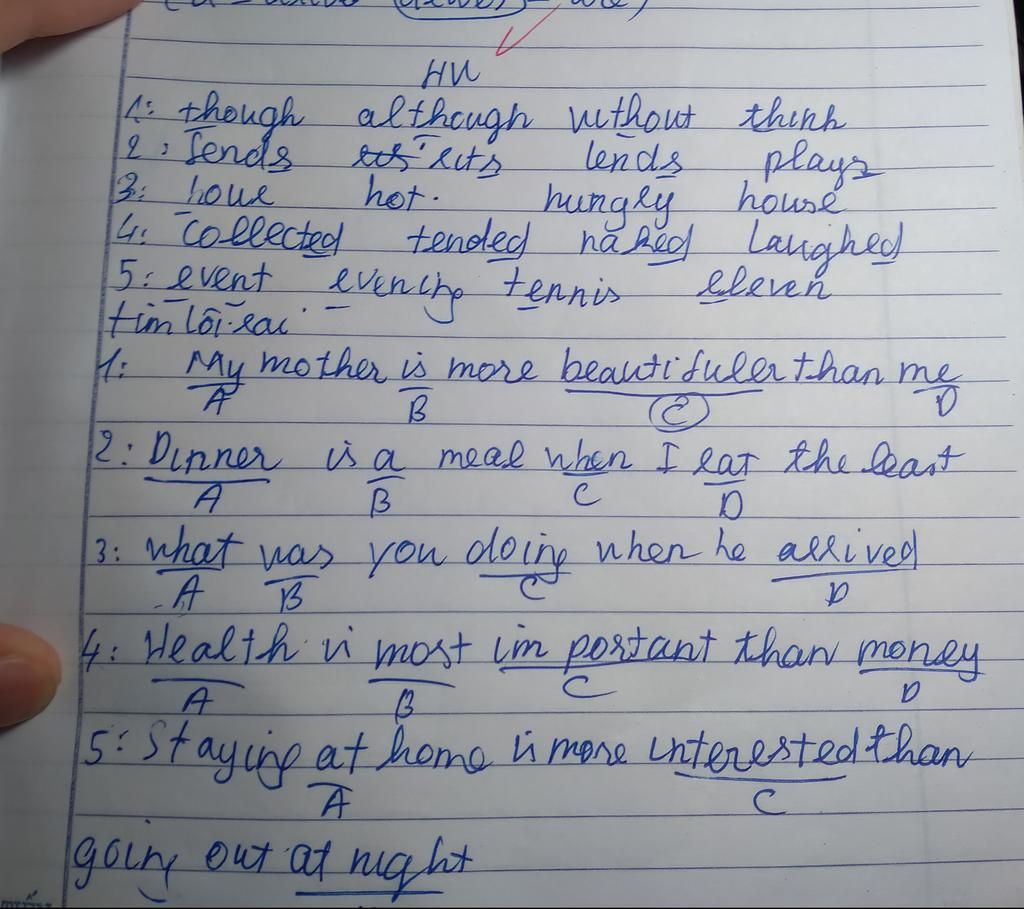 HW
1: though although without think
2: Sends lets lends plays
3: hour hot. hungry house
4: collected tended naked laughed
5: event evening tennis eleven
tìm lỗi sai
1: My mother is more beautifuler than me
A B C D
2: Dinner is a meal when I eat the least
A B C D
3: what was you doing when he arrived
A B C D
4: Health is most important than money
A B C D
5: Staying at home is more interested than
A C
going out at night